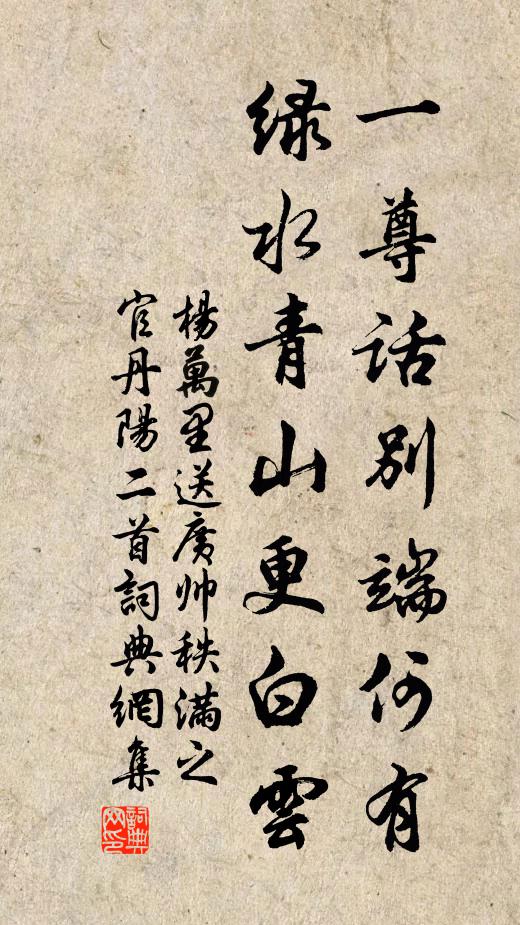 一尊话別端何有
绿水青山更白雲
楊萬里送廣帅秩滿之
官丹陽二首詞典網集
詞典网印